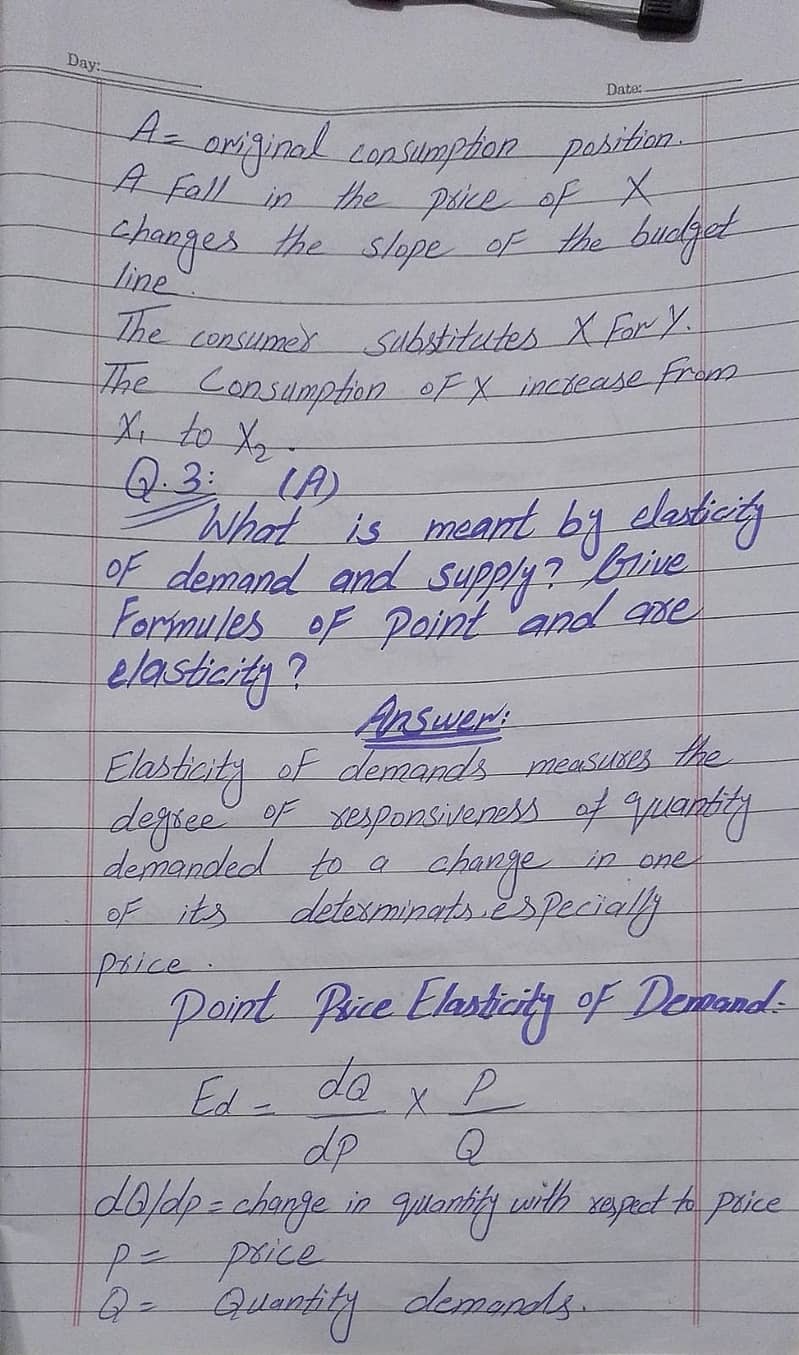 Day:
Date:
A= original consumption position.
A Fall in the price of X
changes the slope of the budget
line.
The consumer substitutes X For Y.
The Consumption of X increase From
X₁ to X₂.
Q.3: (A)
What is meant by elasticity
of demand and supply? Give
Formules of Point and are
elasticity?
Answer:
Elasticity of demands measures the
degree of responsiveness of quantity
demanded to a change in one
of its determinats, especially
price.
Point Price Elasticity of Demand:
Ed = dQ/dp x P/Q
dQ/dp = change in quantity with respect to price
P = price
Q = Quantity demands.